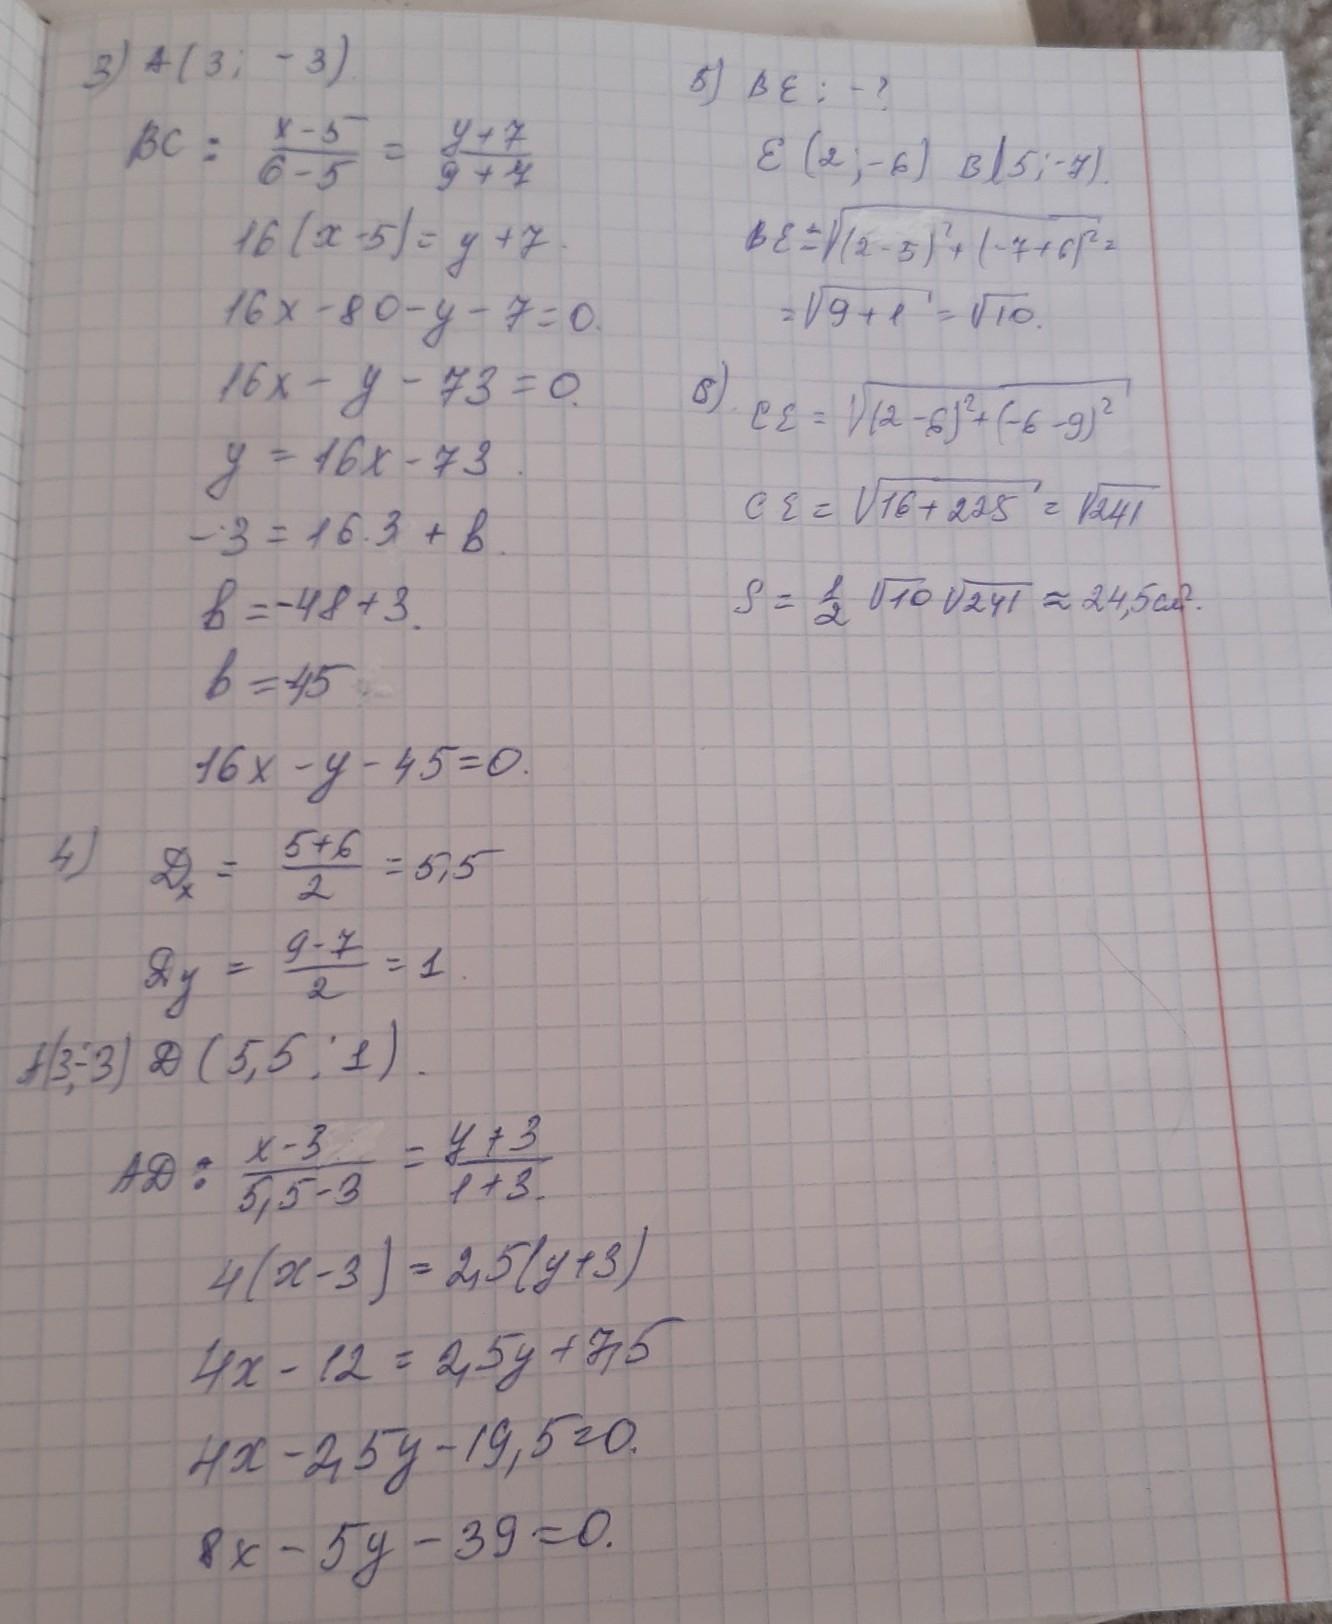 3) A(3; -3)
BC: \frac{x-5}{6-5} = \frac{y+7}{9+7}
16(x-5) = y+7.
16x-80-y-7=0.
16x-y-73=0.
y = 16x-73.
-3 = 16·3 + b.
b = -48+3.
b = -45
16x-y-45=0.
4) Dx = \frac{5+6}{2} = 5,5
Dy = \frac{9-7}{2} = 1.
A(3;-3) D(5,5; 1).
AD: \frac{x-3}{5,5-3} = \frac{y+3}{1+3.}
4(x-3) = 2,5(y+3)
4x-12 = 2,5y+7,5
4x-2,5y-19,5=0.
8x-5y-39=0.
5) BE: -?
E(2;-6) B(5;-7).
BE = \sqrt{(2-5)^2+(-7+6)^2} =
= \sqrt{9+1} = \sqrt{10}.
6) CE = \sqrt{(2-6)^2+(-6-9)^2}
CE = \sqrt{16+225} = \sqrt{241}
S = \frac{1}{2} \sqrt{10} \sqrt{241} ≈ 24,5 см².